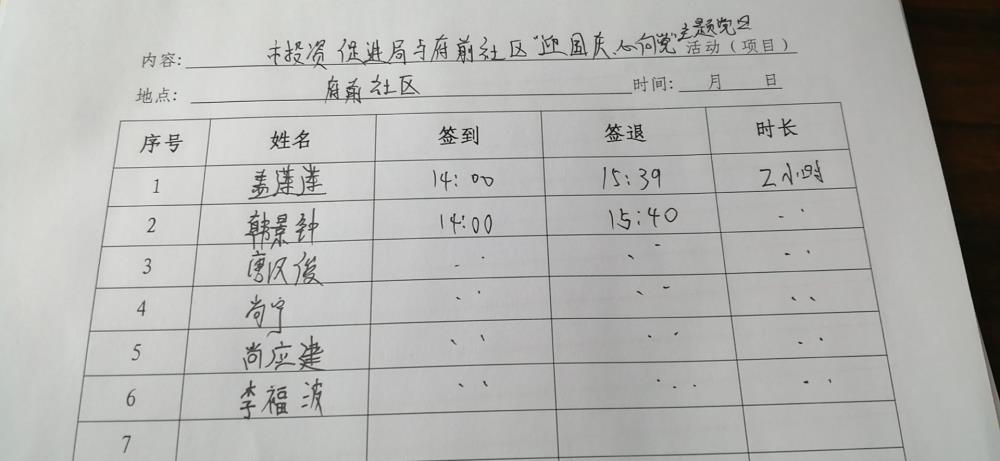 内容: 市投资促进局与府前社区"迎国庆心向党"主题党日活动（项目）
地点: 府前社区 时间: 月 日
序号 姓名 签到 签退 时长
1 14:00 15:39 2小时
2 韩景钟 14:00 15:40 〃
3 唐汉俊 〃 〃 〃
4 尚宁 〃 〃 〃
5 尚应建 〃 〃 〃
6 李福波 〃 〃 〃
7